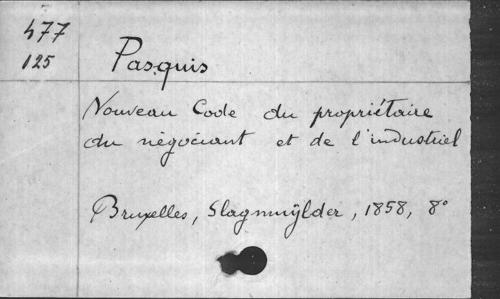 477
125
Pasquis
Nouveau Code du propriétaire
du négociant et de l'industriel
Bruxelles, Slagmuÿlder, 1858, 8°